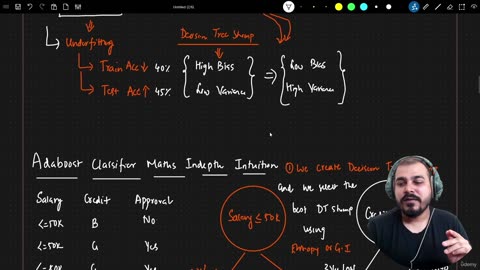 Untitled (24)
Underfitting
Decision Tree Stump
Train Acc ↓ 40%
Test Acc ↑ 45%
High Bias
Low Variance
⇒
Low Bias
High Variance
Adaboost Classifier Maths Indepth Intuition
① We create Decision T
and we select the
best DT stump
using
Entropy or G.I
Salary Credit Approval
<=50K B No
<=50K G Yes
<=50K G Yes
Salary ≤ 50K
Udemy